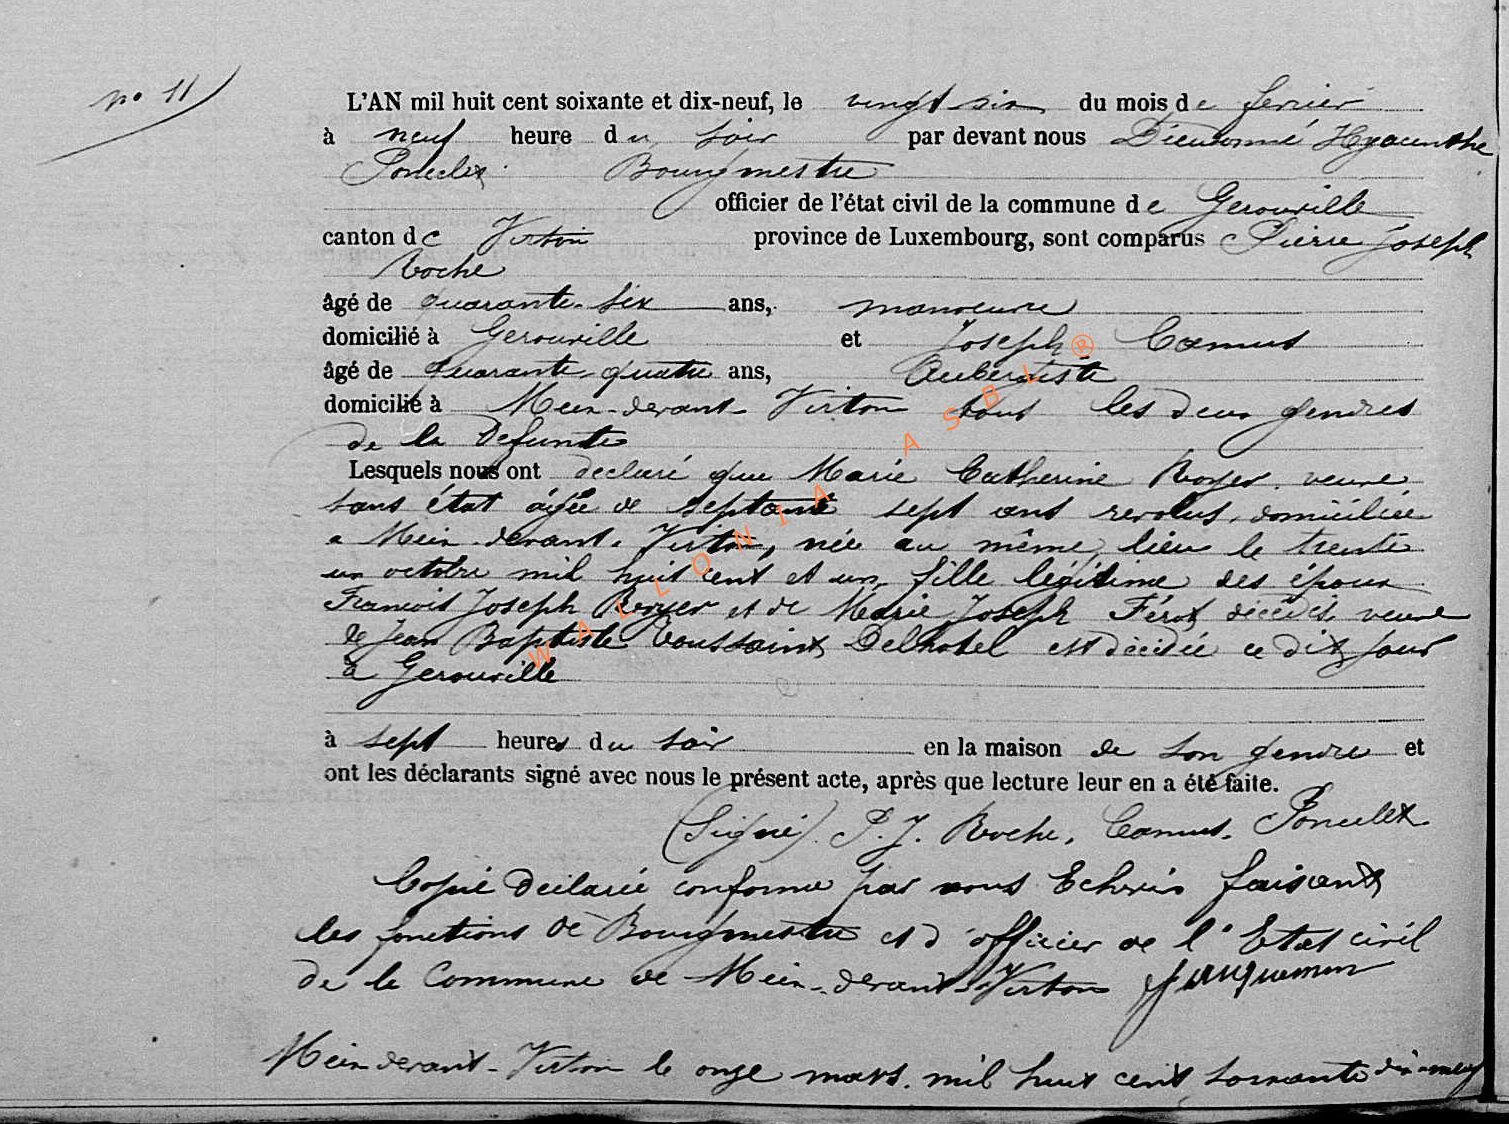 no 11
L'AN mil huit cent soixante et dix-neuf, le vingt six du mois de fevrier
à neuf heure du soir par devant nous Dieudonné Hyacinthe
Poncelet Bourgmestre
officier de l'état civil de la commune de Gerouville
canton de Virton province de Luxembourg, sont comparus Pierre Joseph
Roche
âgé de quarante-six ans, manoeuvre
domicilié à Gerouville et Joseph Camus
âgé de quarante-quatre ans, Aubergiste
domicilié à Meix-devant-Virton tous les deux gendres
de la Defunte
Lesquels nous ont declaré que Marie Catherine Royer veuve
sans état âgée de septante sept ans revolus, domiciliée
a Meix-devant-Virton, née au même lieu le trente
un octobre mil huit cent et un, fille légitime des époux
Francois Joseph Royer et de Marie Joseph decedés, veuve
de Jean Baptiste Toussaint Delhotel est decedée ce dit jour
à Gerouville
à sept heures du soir en la maison de son gendre et
ont les déclarants signé avec nous le présent acte, après que lecture leur en a été faite.
(Signé) P. J. Roche, Camus, Poncelet
Copie declarée conforme par nous Echevin faisant
les fonctions de Bourgmestre et d'officier de l'Etat civil
de la Commune de Meix-devant-Virton Jacquemin
Meix-devant-Virton le onze mars mil huit cent soixante dix-neuf
WALLONIA ASBL ®